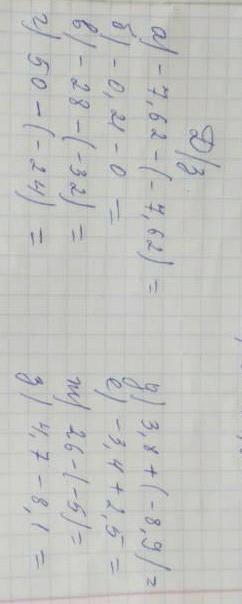 Д/з
а) - 7,62 - (- 7,62) =
б) - 0,21 - 0 =
в) - 28 - (-32) =
г) 50 - (-24) =
д) 3,8 + (-8,9) =
е) -3,4 + 2,5 =
ж) 26 - (-5) =
з) 4,7 - 8,1 =